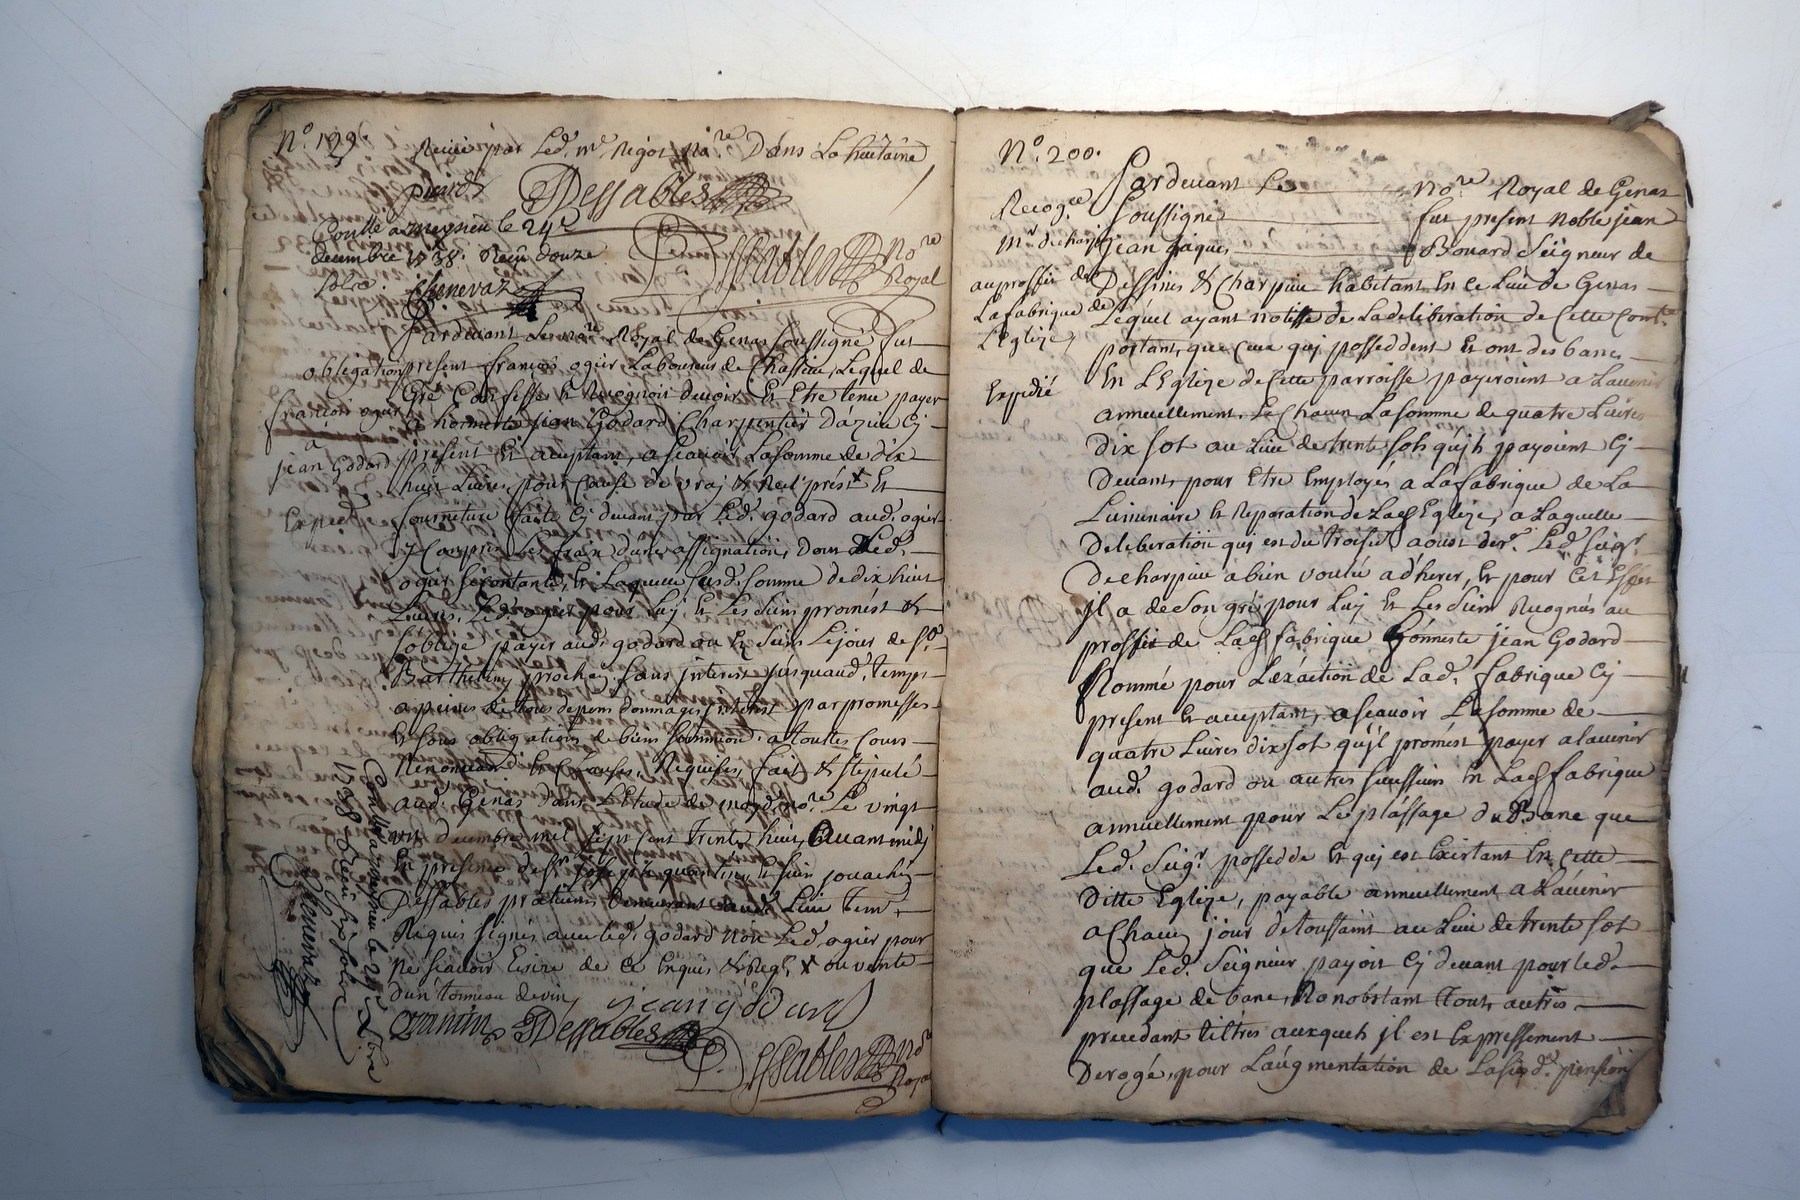 N.º 199.
Receu par Led. mᵉ. Rigot noʳᵉ Dans La huitaine
Dessables
Conllé a meysieu le 24ᵉ
decembre 1738. Receu douze
sols. Chenevaz
Dessables Noʳᵉ
Royal
Pardevant Le noʳᵉ Royal de Genas soussigné fut
obligation
françois ogier
a
jean Godard
Exped.
present françois ogier Laboureur de Chassieu, Lequel de
Gré Confesse & Recognoit devoir Et Etre tenu payer
a honneste jean Godard Charpentier d'azieu Cy
present Et acceptant, a scavoir La somme de dix
huit Livres, pour Cause de vray & Reel prést x Et
fourniture faite Cy devant par Led. godard aud. ogier
y Compris Les frais d'une assignation, Dont Led.
ogier se contante, Et Laquelle susd. somme de dix huit
Livres, Led. ogier pour Luy Et Les siens promést &
s'oblige payer aud. godard ou Es siens Le jour de Sᵗ.
Barthelmy prochain sans jnterest jusquaud. temps
a peines de tous depens dommages jnterest par promesses
Et sous obligation de biens soumission a toutes Cours
Renonciaõn Et Clauses Requises, fait & stipulé
aud. Genas dans L'Etude de moyd. noʳᵉ Le vingt
un decembre mil sept Cent trente huit avant midj
En presence de Sʳ joseph quantin, Et sieur jouachin
Dessables praticiens demeurant aud. Lieu tem.
Requis signés avec led. godard non Led. ogier pour
ne scavoir Ecrire de Ce Enquis & Reqs x ou vente
d'un tonneau de vin jean godard
Dessables
Dessables Noʳᵉ
Royal
Conllé a meysieu le 24ᵉ Xbre
1738 Receu six sols
Chenevaz
N.º 200.
Pardevant Le noʳᵉ Royal de Genas
Soussigné fut present Noble jean
jean jaques Bouard Seigneur de
Recogᶜᵉ
Mʳ. decharpieu
au proffit de
La fabrique de
L'Eglize
Expedié
Dessines & Charpieu habitant En Ce Lieu de Genas
Lequel ayant notisse de La deliberation de Cette Comᵗᵉ
portant, que Ceux quj posseddent Et ont des bancs
En L'Eglize de Cette parroisse payeroient a L'avenir
annuellement, Et Chacun La somme de quatre Livres
dix sot au Lieu de trente sols qu'jls payoient Cj
devant, pour Etre Employés a La fabrique de La
Luminaire Et Reparation de Lad. Eglize, a Laquelle
Deliberation quj est du troisieᵉ aoust derʳ. Led. Seigʳ.
decharpieu a bien voulu adherer, Et pour Cet Effet
jl a de son gré pour Luy Et Les siens Recognus au
proffit de Lad. fabrique honneste jean Godard
Nommé pour L'exáction de Lad. fabrique Cy
present Et acceptant, a scavoir La somme de
quatre Livres dix sot qu'jl promést payer a lavenir
aud. godard ou autres En Lad. fabrique
annuellement pour Le plassage du Banc que
Led. Seigʳ possedde Et quj est Existant En Cette
ditte Eglize, payable annuellement a L'avenir
a Chacun jour de toussaint au Lieu de trente sot
que Led. Seigneur payoit Cj devant pour led.
plassage de banc, Nonobstant tous autres
precedant tiltres auxquels jl est Expressement
Derogé, pour L'aúgmentation de La susd.ᵉ pension